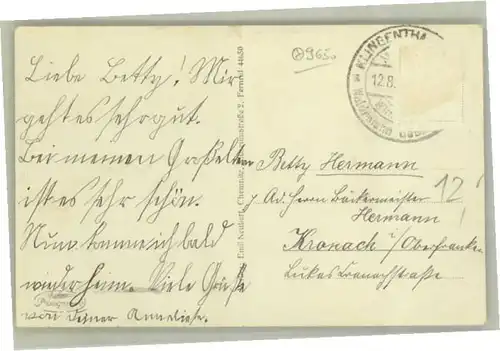 Liebe Betty! Mir
geht es sehr gut.
Bei meinen Großeltern
ist es sehr schön.
Nun komme ich bald
wieder heim. Viele Grüße
von deiner Anneliese.
Emil Neubert, Chemnitz, 2, Fernruf 44650
965
KLINGENTHAL
12.8.
Betty Hermann
Ad. Herrn Bäckermeister
Hermann
Kronach i/Oberfranken
Lukas Cranachstraße
12